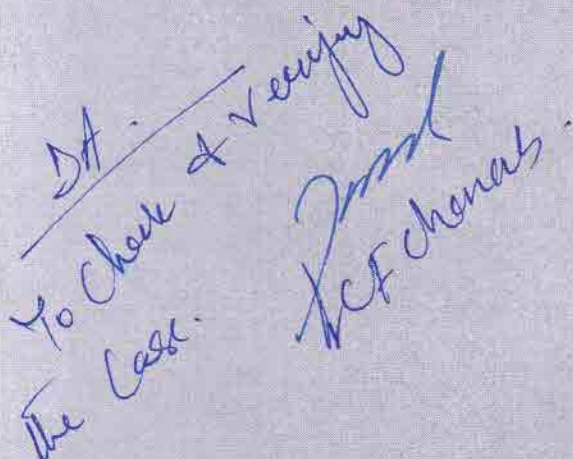 DA.
To Check & verifying
the Case.
CF Chenab.